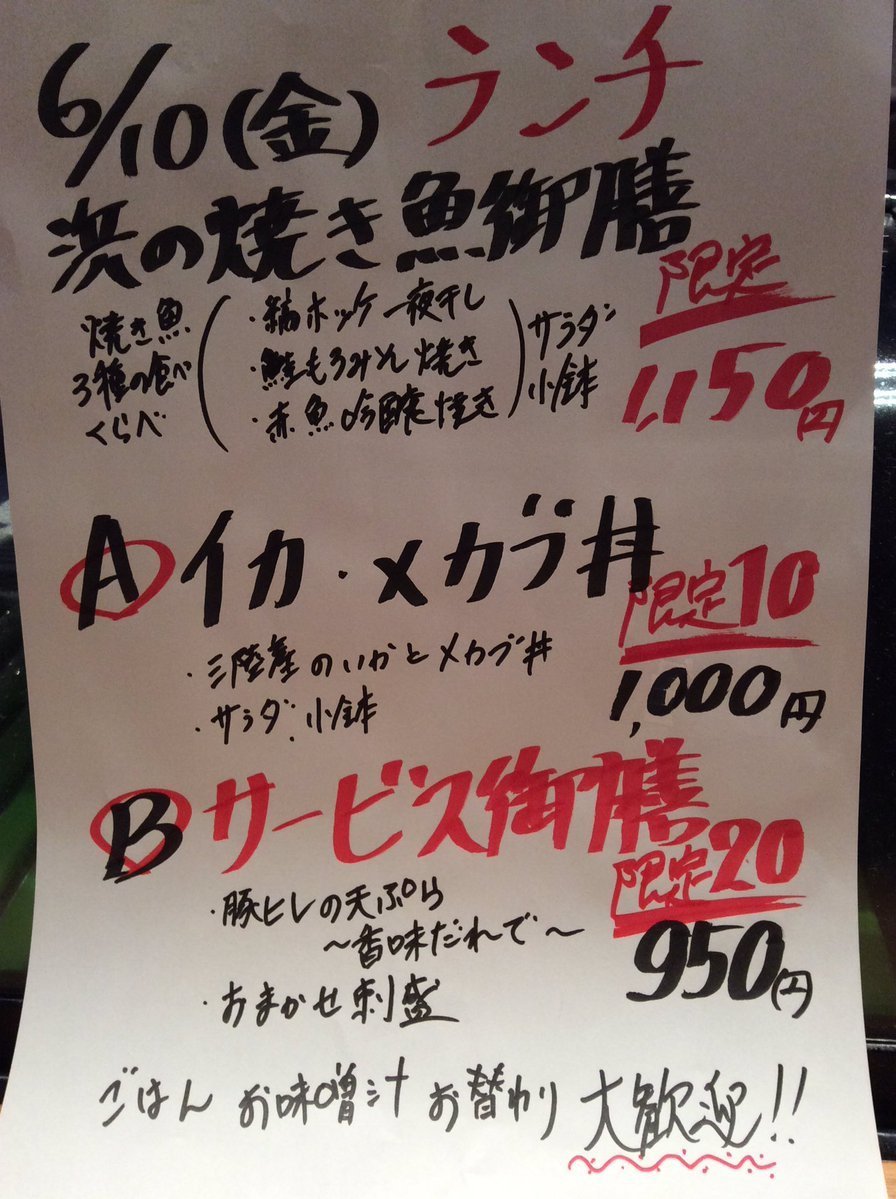 6/10(金) ランチ
浜の焼き魚御膳
限定
焼き魚
3種の食べ
くらべ
・縞ホッケ一夜干し
・鮭もろみそ焼き
・赤魚吟醸焼き
サラダ
小鉢
1,150円
A イカ・メカブ丼
限定10
・三陸産のいかとメカブ丼
・サラダ、小鉢
1,000円
B サービス御膳
限定20
・豚ヒレの天ぷら
〜香味だれで〜
・おまかせ刺盛
950円
ごはん お味噌汁 お替わり 大歓迎!!